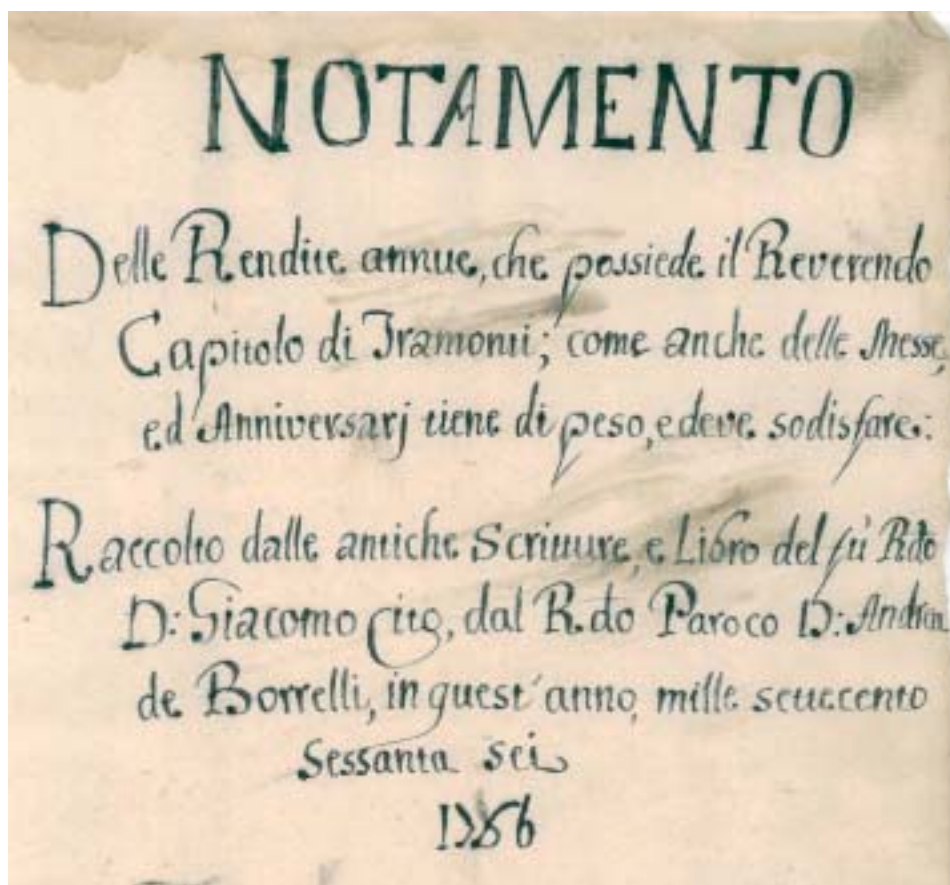 NOTAMENTO
Delle Rendite annue, che possiede il Reverendo
Capitolo di Tramonti; come anche delle Messe,
ed Anniversarj tiene di peso, e deve sodisfare:
Raccolto dalle antiche Scritture, e Libro del fù R.do
D: Giacomo Cito, dal R.do Paroco D: Andrea
de Borrelli, in quest'anno mille settecento
Sessanta sei
1766